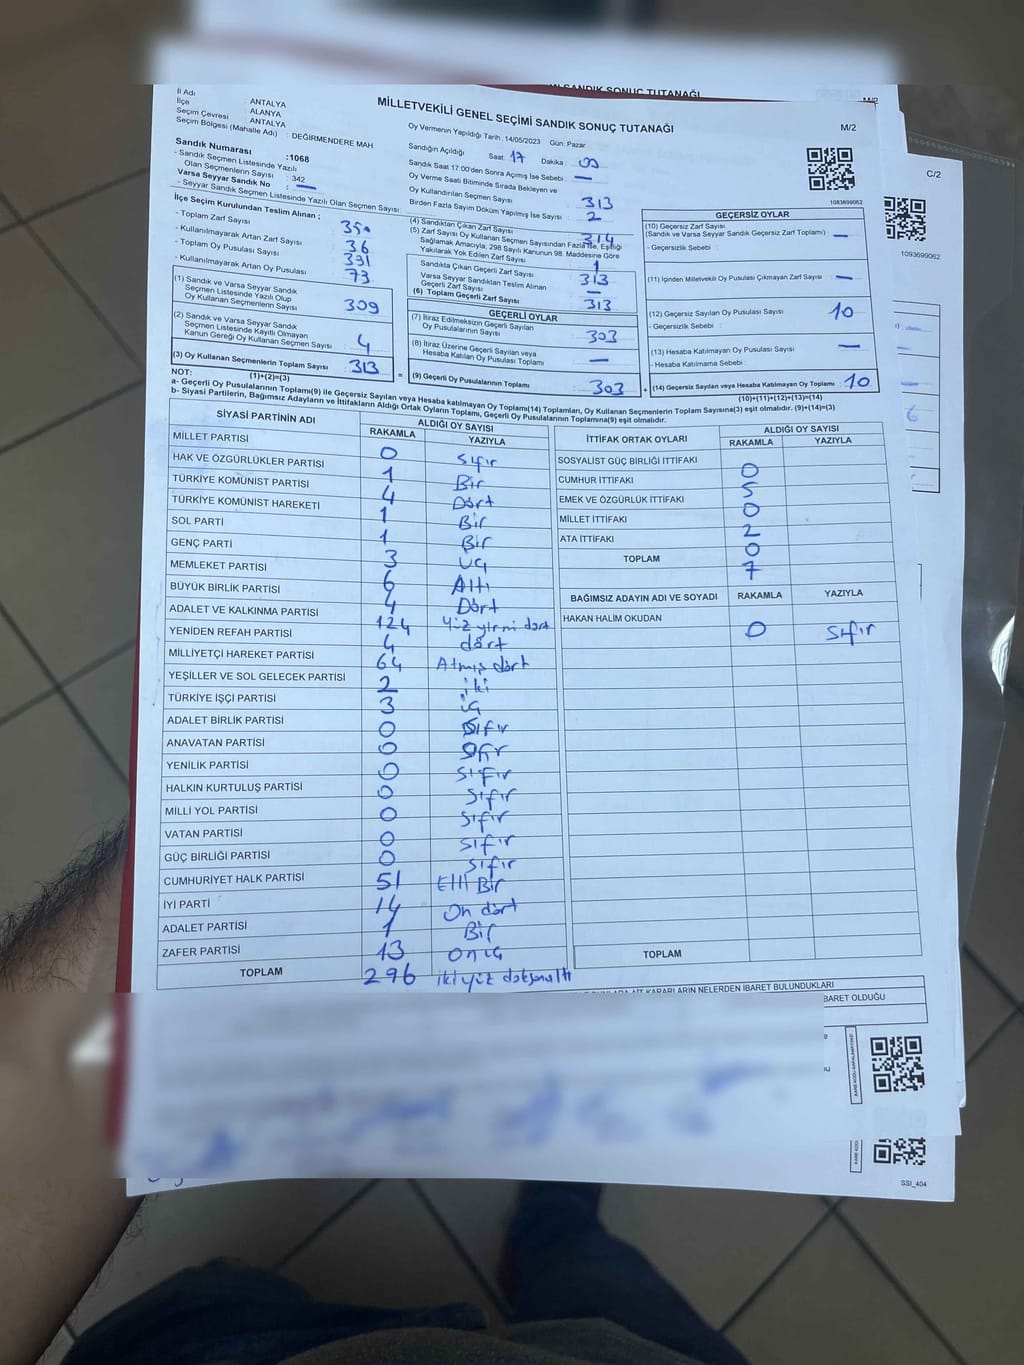 SANDIK SONUÇ TUTANAĞI
M/2
İl Adı : ANTALYA
İlçe : ALANYA
Seçim Çevresi : ANTALYA
Seçim Bölgesi (Mahalle Adı) : DEĞİRMENDERE MAH.
MİLLETVEKİLİ GENEL SEÇİMİ SANDIK SONUÇ TUTANAĞI
M/2
C/2
Oy Vermenin Yapıldığı Tarih : 14/05/2023 Gün: Pazar
Sandık Numarası : 1068
- Sandık Seçmen Listesinde Yazılı
Olan Seçmenlerin Sayısı : 342
Varsa Seyyar Sandık No : —
- Seyyar Sandık Seçmen Listesinde Yazılı Olan Seçmen Sayısı :
Sandığın Açıldığı Saat: 17 Dakika : 00
Sandık Saat 17:00'den Sonra Açılmış İse Sebebi : —
Oy Verme Saati Bitiminde Sırada Bekleyen ve
Oy Kullandırılan Seçmen Sayısı : 313
Birden Fazla Sayım Döküm Yapılmış İse Sayısı : 2
1083699062
1093699062
İlçe Seçim Kurulundan Teslim Alınan ;
- Toplam Zarf Sayısı : 350
- Kullanılmayarak Artan Zarf Sayısı : 36
- Toplam Oy Pusulası Sayısı : 391
- Kullanılmayarak Artan Oy Pusulası : 73
(1) Sandık ve Varsa Seyyar Sandık
Seçmen Listesinde Yazılı Olup
Oy Kullanan Seçmenlerin Sayısı : 309
(2) Sandık ve Varsa Seyyar Sandık
Seçmen Listesinde Kayıtlı Olmayan
Kanun Gereği Oy Kullanan Seçmen Sayısı : 4
(3) Oy Kullanan Seçmenlerin Toplam Sayısı : 313
(1)+(2)=(3)
(4) Sandıktan Çıkan Zarf Sayısı : 314
(5) Zarf Sayısı Oy Kullanan Seçmen Sayısından Fazla İse, Eşitliği
Sağlamak Amacıyla, 298 Sayılı Kanunun 98. Maddesine Göre
Yakılarak Yok Edilen Zarf Sayısı : 1
Sandıkta Çıkan Geçerli Zarf Sayısı : 313
Varsa Seyyar Sandıktan Teslim Alınan
Geçerli Zarf Sayısı : —
(6) Toplam Geçerli Zarf Sayısı : 313
GEÇERLİ OYLAR
(7) İtiraz Edilmeksizin Geçerli Sayılan
Oy Pusulalarının Sayısı : 303
(8) İtiraz Üzerine Geçerli Sayılan veya
Hesaba Katılan Oy Pusulası Toplamı : —
= (9) Geçerli Oy Pusulalarının Toplamı : 303 +
GEÇERSİZ OYLAR
(10) Geçersiz Zarf Sayısı
(Sandık ve Varsa Seyyar Sandık Geçersiz Zarf Toplamı) : —
- Geçersizlik Sebebi :
(11) İçinden Milletvekili Oy Pusulası Çıkmayan Zarf Sayısı : —
(12) Geçersiz Sayılan Oy Pusulası Sayısı : 10
- Geçersizlik Sebebi :
(13) Hesaba Katılmayan Oy Pusulası Sayısı : —
- Hesaba Katılmama Sebebi :
(14) Geçersiz Sayılan veya Hesaba Katılmayan Oy Toplamı : 10
(10)+(11)+(12)+(13)=(14)
NOT:
a- Geçerli Oy Pusulalarının Toplamı(9) ile Geçersiz Sayılan veya Hesaba katılmayan Oy Toplamı(14) Toplamları, Oy Kullanan Seçmenlerin Toplam Sayısına(3) eşit olmalıdır. (9)+(14)=(3)
b- Siyasi Partilerin, Bağımsız Adayların ve İttifakların Aldığı Ortak Oyların Toplamı, Geçerli Oy Pusulalarının Toplamına(9) eşit olmalıdır.
SİYASİ PARTİNİN ADI ALDIĞI OY SAYISI
RAKAMLA YAZIYLA
MİLLET PARTİSİ 0 Sıfır
HAK VE ÖZGÜRLÜKLER PARTİSİ 1 Bir
TÜRKİYE KOMÜNİST PARTİSİ 4 Dört
TÜRKİYE KOMÜNİST HAREKETİ 1 Bir
SOL PARTİ 1 Bir
GENÇ PARTİ 3 Üç
MEMLEKET PARTİSİ 6 Altı
BÜYÜK BİRLİK PARTİSİ 4 Dört
ADALET VE KALKINMA PARTİSİ 124 Yüz yirmi dört
YENİDEN REFAH PARTİSİ 4 dört
MİLLİYETÇİ HAREKET PARTİSİ 64 Atmış dört
YEŞİLLER VE SOL GELECEK PARTİSİ 2 iki
TÜRKİYE İŞÇİ PARTİSİ 3 üç
ADALET BİRLİK PARTİSİ 0 Sıfır
ANAVATAN PARTİSİ 0 Sıfır
YENİLİK PARTİSİ 0 Sıfır
HALKIN KURTULUŞ PARTİSİ 0 Sıfır
MİLLİ YOL PARTİSİ 0 Sıfır
VATAN PARTİSİ 0 Sıfır
GÜÇ BİRLİĞİ PARTİSİ 0 Sıfır
CUMHURİYET HALK PARTİSİ 51 Elli Bir
İYİ PARTİ 14 On dört
ADALET PARTİSİ 1 Bir
ZAFER PARTİSİ 13 on üç
TOPLAM 296 ikiyüz doksanaltı
İTTİFAK ORTAK OYLARI ALDIĞI OY SAYISI
RAKAMLA YAZIYLA
SOSYALİST GÜÇ BİRLİĞİ İTTİFAKI 0
CUMHUR İTTİFAKI 5
EMEK VE ÖZGÜRLÜK İTTİFAKI 0
MİLLET İTTİFAKI 2
ATA İTTİFAKI 0
TOPLAM 7
BAĞIMSIZ ADAYIN ADI VE SOYADI RAKAMLA YAZIYLA
HAKAN HALİM OKUDAN 0 Sıfır
TOPLAM
AİT KARARLARIN NELERDEN İBARET BULUNDUKLARI
İBARET OLDUĞU
SSİ_404